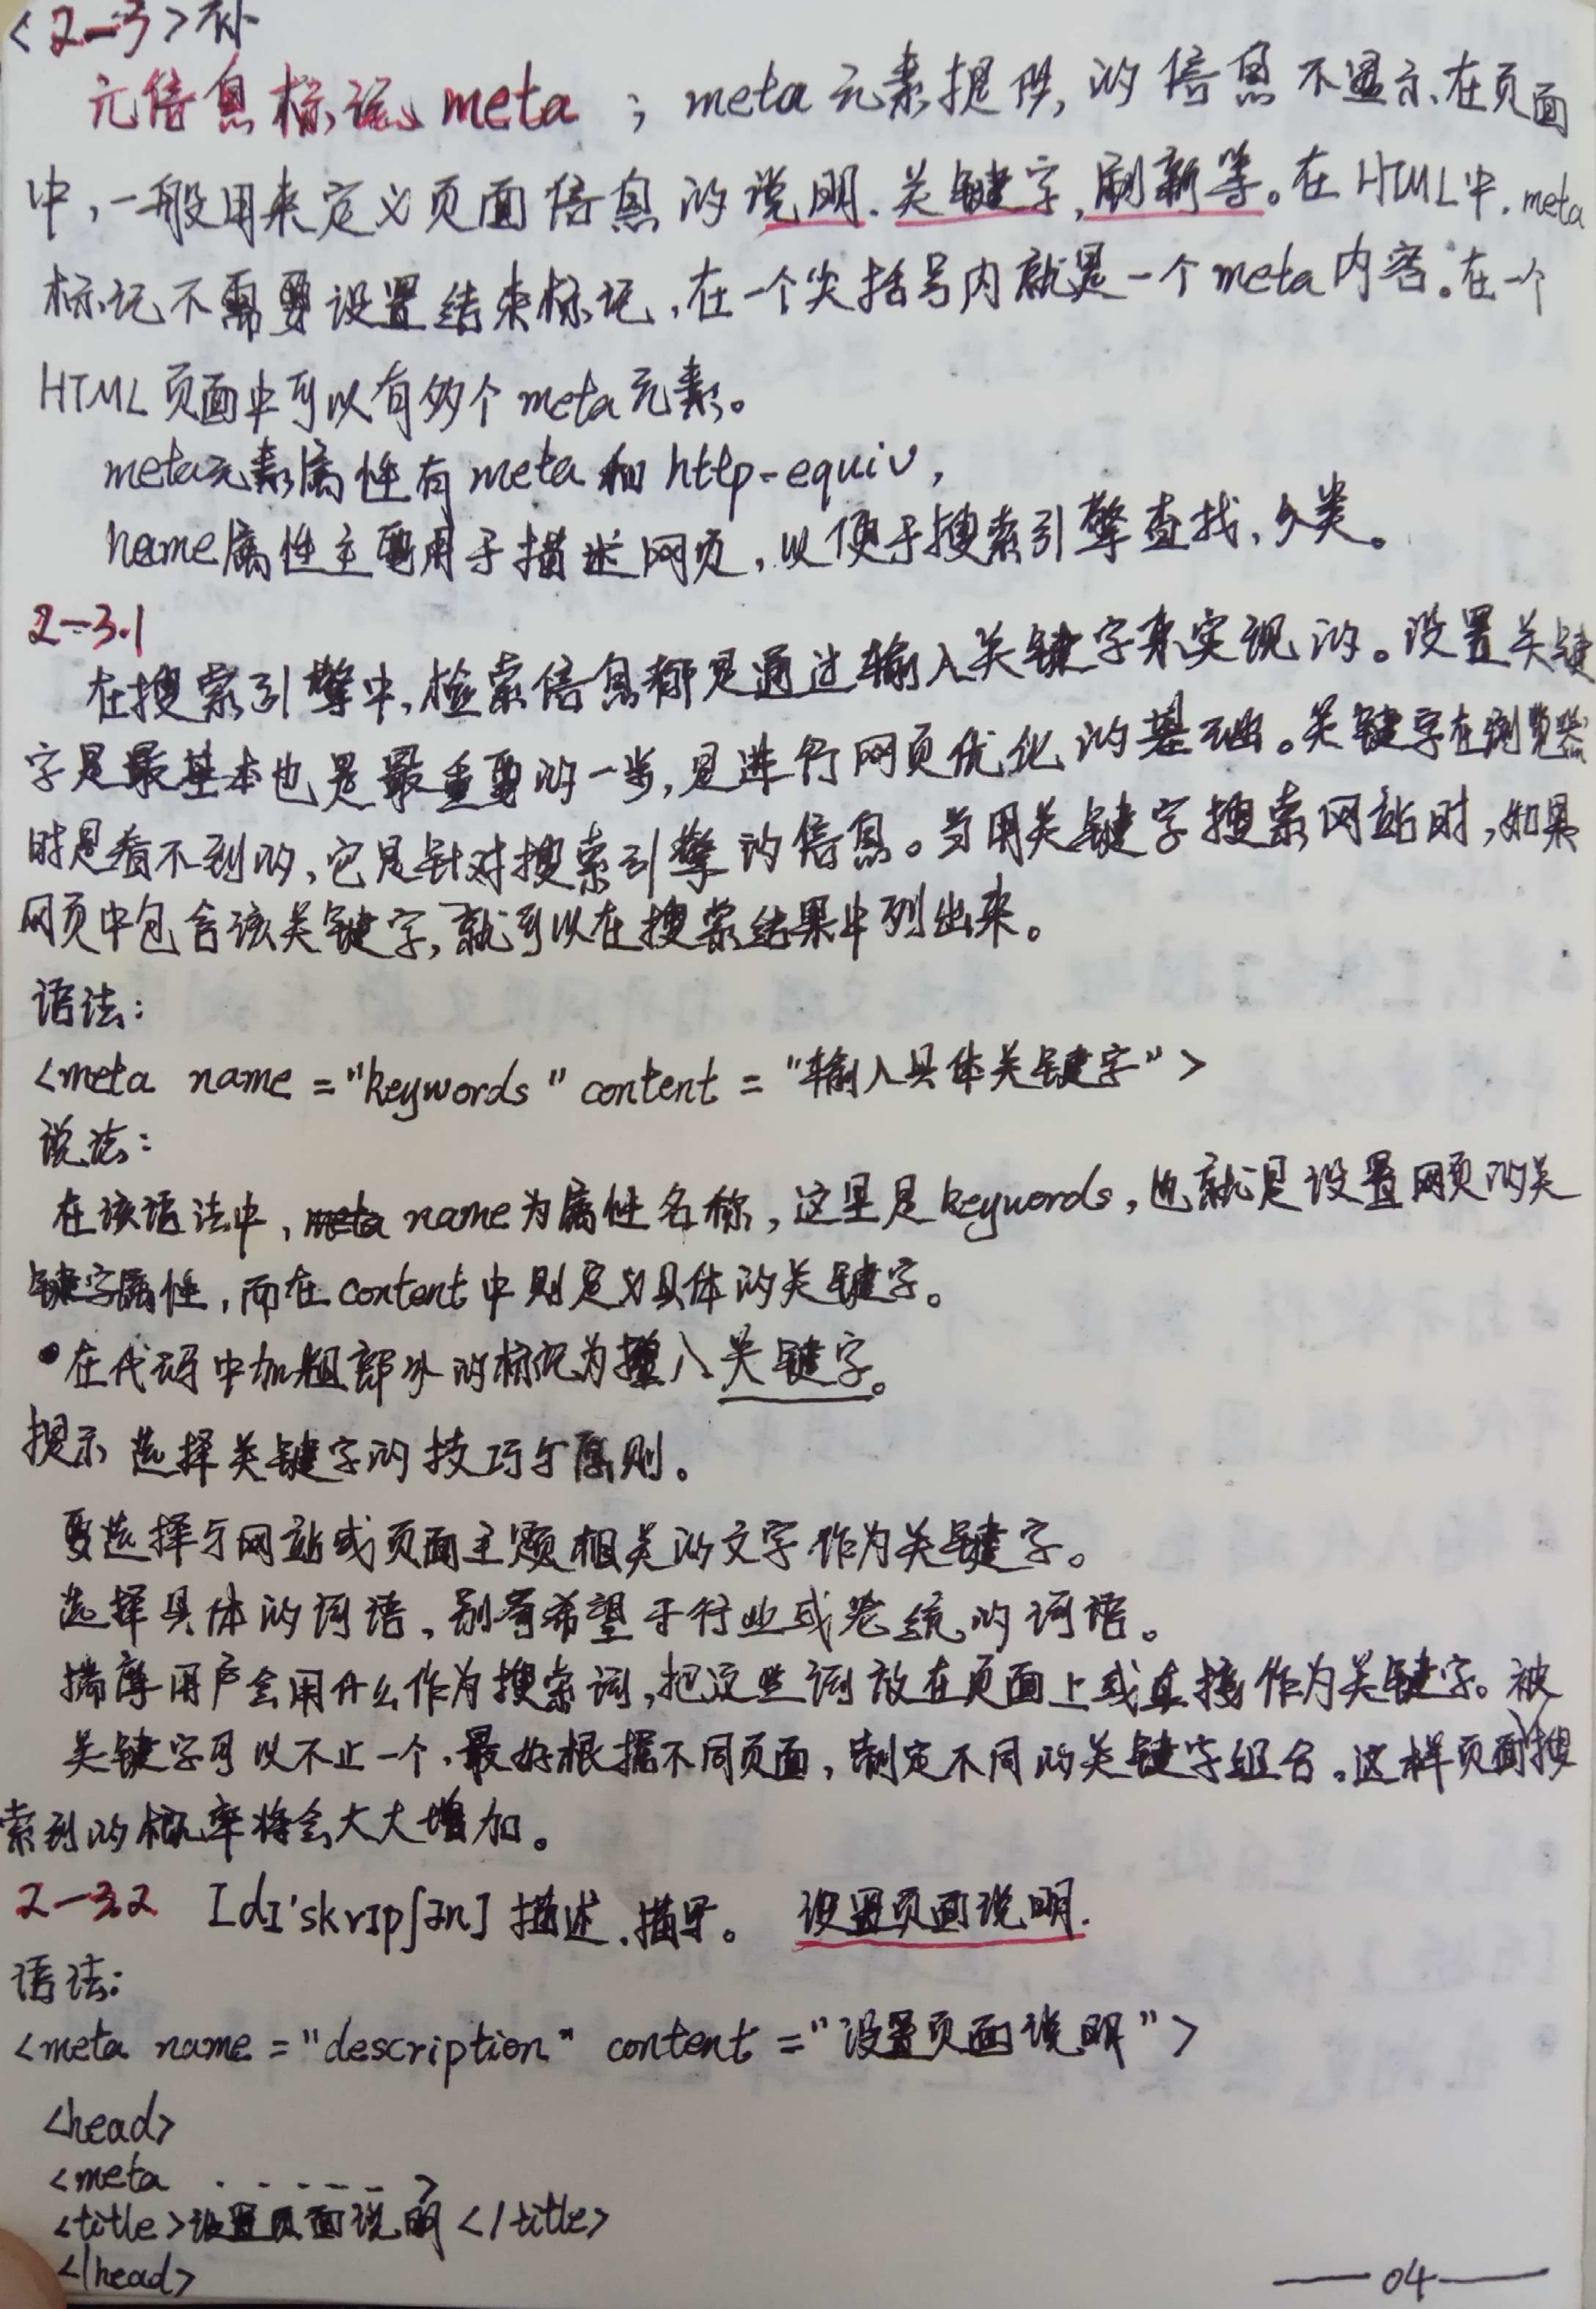 <2-3>补
元信息标记 meta ; meta 元素提供的信息不显示在页面
中,一般用来定义页面信息的说明.关键字,刷新等。在HTML中.meta
标记不需要设置结束标记,在一个尖括号内就是一个meta内容。在一个
HTML页面中可以有多个meta元素。
meta元素属性有meta和http-equiv,
name属性主要用于描述网页,以便于搜索引擎查找、分类。
2-3.1
在搜索引擎中,检索信息都是通过输入关键字来实现的。设置关键
字是最基本也是最重要的一步,是进行网页优化的基础。关键字在浏览器
时是看不到的,它是针对搜索引擎的信息。当用关键字搜索网站时,如果
网页中包含该关键字,就可以在搜索结果中列出来。
语法:
<meta name="keywords" content="输入具体关键字">
说法:
在该语法中,meta name为属性名称,这里是keywords,也就是设置网页的关
键字属性,而在content中则定义具体的关键字。
•在代码中加粗部分的标记为插入关键字。
提示 选择关键字的技巧与原则。
要选择与网站或页面主题相关的文字作为关键字。
选择具体的词语,别寄希望于行业或笼统的词语。
揣摩用户会用什么作为搜索词,把这些词放在页面上或直接作为关键字。
关键字可以不止一个,最好根据不同页面,制定不同的关键字组合。这样页面被搜
索到的概率将会大大增加。
2-3.2 [dɪ'skrɪpʃən] 描述.描写。 设置页面说明.
语法:
<meta name="description" content="设置页面说明">
<head>
<meta ------>
<title>设置页面说明</title>
</head>
——04——